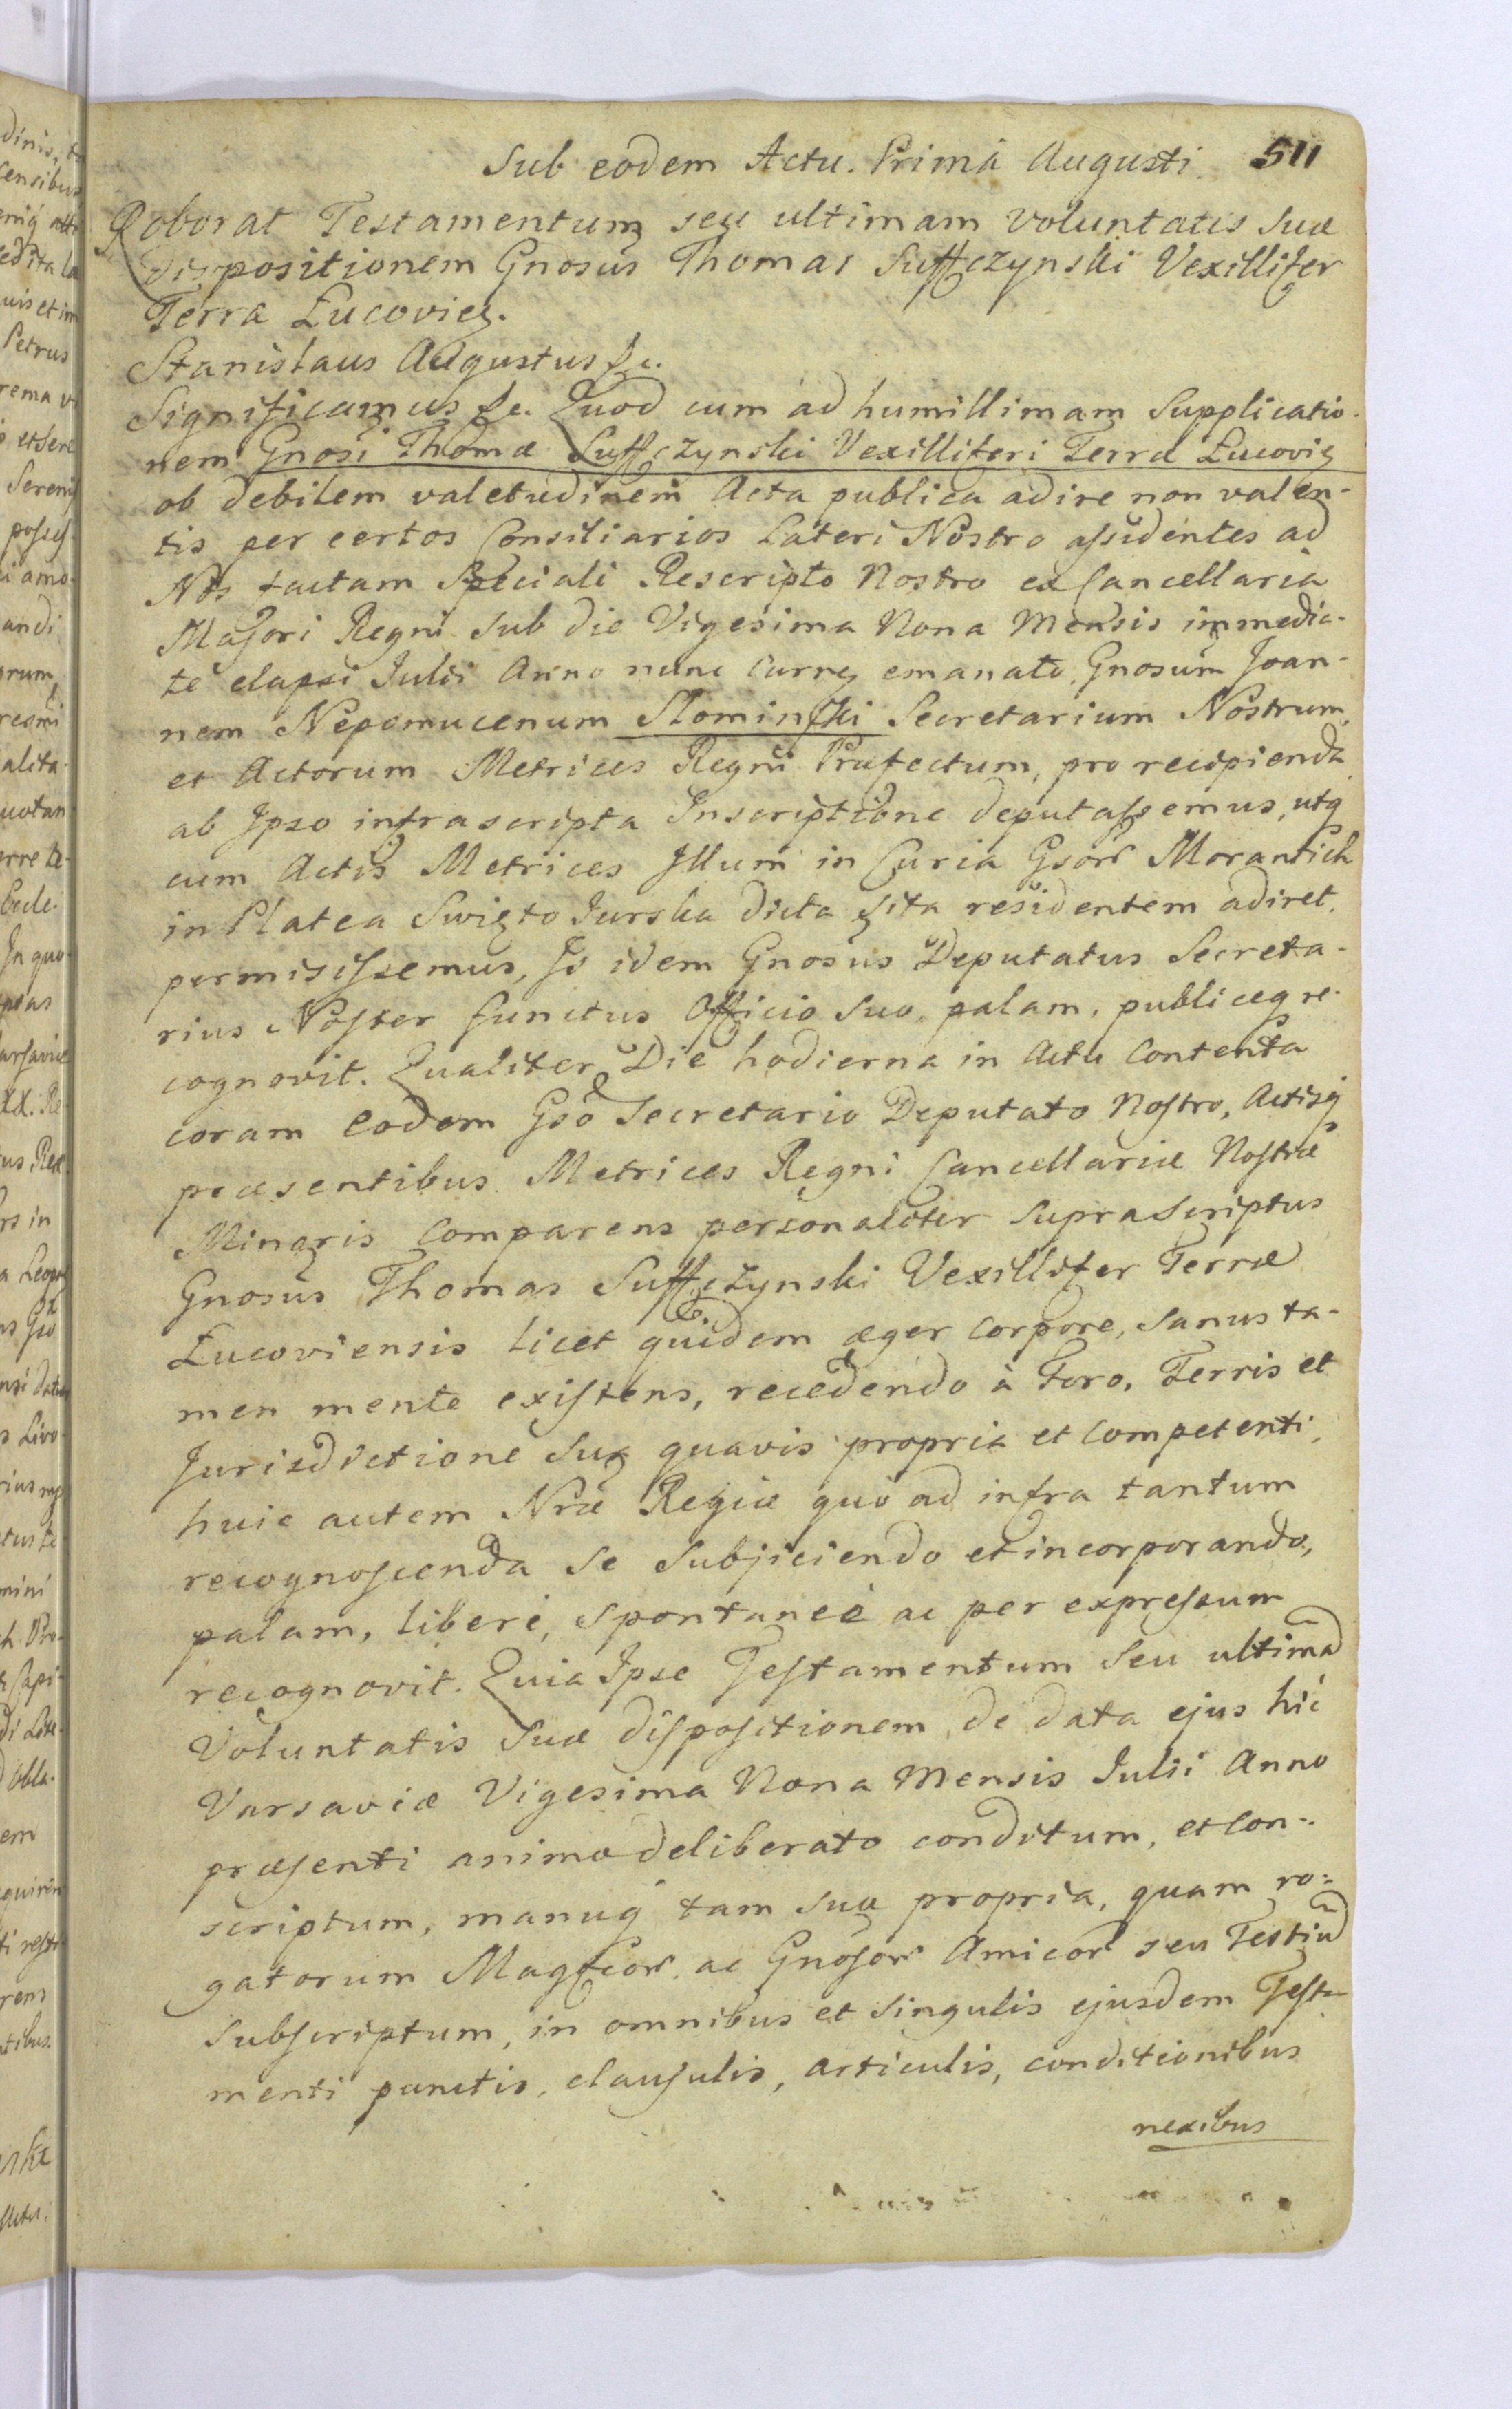 Sub eodem Actu. Primâ Augusti. 511
Roborat Testamentum seu ultimam voluntatis suæ
Dispositionem Gnosus Thomas Suffczynski Vexillifer
Terræ Łucovien.
Stanislaus Augustus &c.
Significamus &c. Quod cum ad humillimam Supplicatio-
nem Gnosi Thomæ Suffczynski Vexilliferi Terræ Łucovien
ob debilem valetudinem Acta publica adire non valen-
tis per certos Consiliarios Lateri Nostro assidentes ad
Nos factam Speciali Rescripto Nostro ex Cancellaria
Majori Regni sub die Vigesima Nona Mensis immedia-
te elapsi Julii Anno nunc Curren emanato, Gnosum Joan-
nem Nepomucenum Słominski Secretarium Nostrum,
et Actorum Metrices Regni Præfectum, pro recipienda
ab Ipso infrascripta Inscriptione deputassemus, utq
cum Actis Metrices Illum in Curia Gsor Morantich
in Platea Swięto Jurska dicta sita residentem adiret,
permisissemus, Is idem Gnosus Deputatus Secreta-
rius Noster functus Officio suo, palam, publiceq re-
cognovit. Qualiter Die hodierna in Actu Contenta
coram eodem Gso Secretario Deputato Nostro, Actisq
præsentibus Metrices Regni Cancellariæ Nostræ
Minoris Comparens personaliter suprascriptus
Gnosus Thomas Suffczynski Vexillifer Terræ
Łucoviensis licet quidem æger corpore, sanus ta-
men mente existens, recedendo à Foro, Terris et
Jurisdictione sua quavis propria et competenti,
huic autem Nræ Regiæ quo ad infra tantum
recognoscenda se subjiciendo et incorporando,
palam, liberè, spontaneè ac per expressum
recognovit. Quia Ipse Testamentum seu ultimã
Voluntatis suæ dispositionem de data ejus hic
Varsaviæ Vigesima Nona Mensis Julii Anno
præsenti animo deliberato conditum, et con=
scriptum, manuq tam sua propria, quam ro=
gatorum Magficor ac Gnosor Amicor seu Testiũ
subscriptum, in omnibus et singulis ejusdem Testa
menti punctis, clausulis, articulis, conditionibus
nexibus